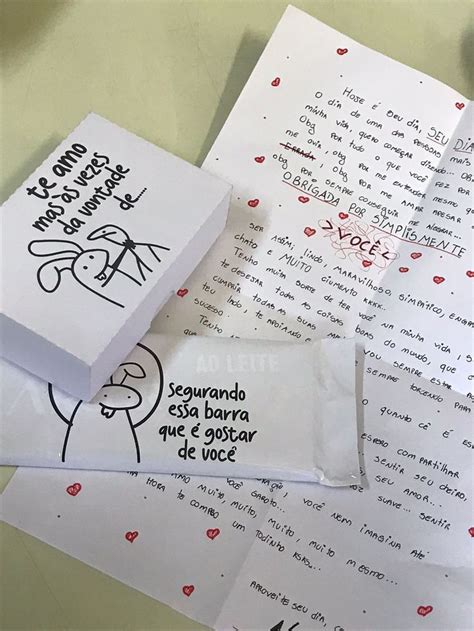 te amo
mas às vezes
da vontade
de....
AO LEITE
segurando
essa barra
que é gostar
de você
HOJE É SEU DIA, SEU DIA
O DIA DE UMA DAS PESSOAS
MINHA VIDA, QUERO COMEÇAR DIZENDO...
OBG POR TUDO O QUE VOCÊ FEZ POR
ME OUVIR, OBG POR ME ENTENDER MESMO
ERRADA, OBG POR ME AMAR APESAR
OBG POR SEMPRE CONSEGUIR ME ALEGRAR...
OBRIGADA POR SIMPLISMENTE
>VOCÊ<
SER ASSIM, LINDO, MARAVILHOSO, SIMPÁTICO,
CHATO E MUITO CIUMENTO KKKK.
TENHO MUITA SORTE DE TER VOCÊ NA MINHA VIDA,
TE DESEJAR TODAS AS COISAS BOAS DO MUNDO, QUE
CUMPRIR TODAS AS SUAS
TEU LADO, TE APOIANDO E
SUCESSO
TENHO
VOU SEMPRE ESTAR
SEMPRE TORCENDO PARA
O QUANTO CÊ É ESPE
ESPERO COMPARTILHAR
SENTIR SEU CHEIRO,
SEU AMOR...
SUAVE... SENTIR
AMO MUITO, MUITO, VOCÊ NEM IMAGINA ATÉ
HORA TE COMPRO MUITO, MUITO, MUITO MESMO...
UM TODINHO KSKS...
APROVEITE SEU DIA,